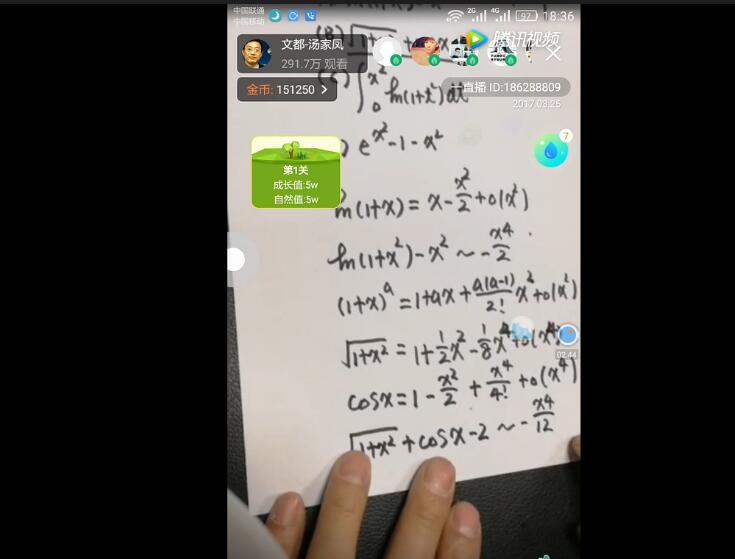 中国联通
中国移动
2G 4G 97 18:36
腾讯视频
文都·汤家凤
291.7万 观看
金币: 151250 >
一直播 ID:186288809
2017.03.25
7
第1关
成长值:5w
自然值:5w
∫₀^{x²} ln(1+t²)dt
) e^{x²}-1-x²
ln(1+x) = x - x²/2 + o(x²)
ln(1+x²) - x² ~ -x⁴/2
(1+x)^a = 1+ax+ a(a-1)/2! x² + o(x²)
√(1+x²) = 1+ 1/2 x² - 1/8 x⁴ + o(x⁴)
02:44
cosx = 1 - x²/2 + x⁴/4! + o(x⁴)
√(1+x²) + cosx - 2 ~ -x⁴/12